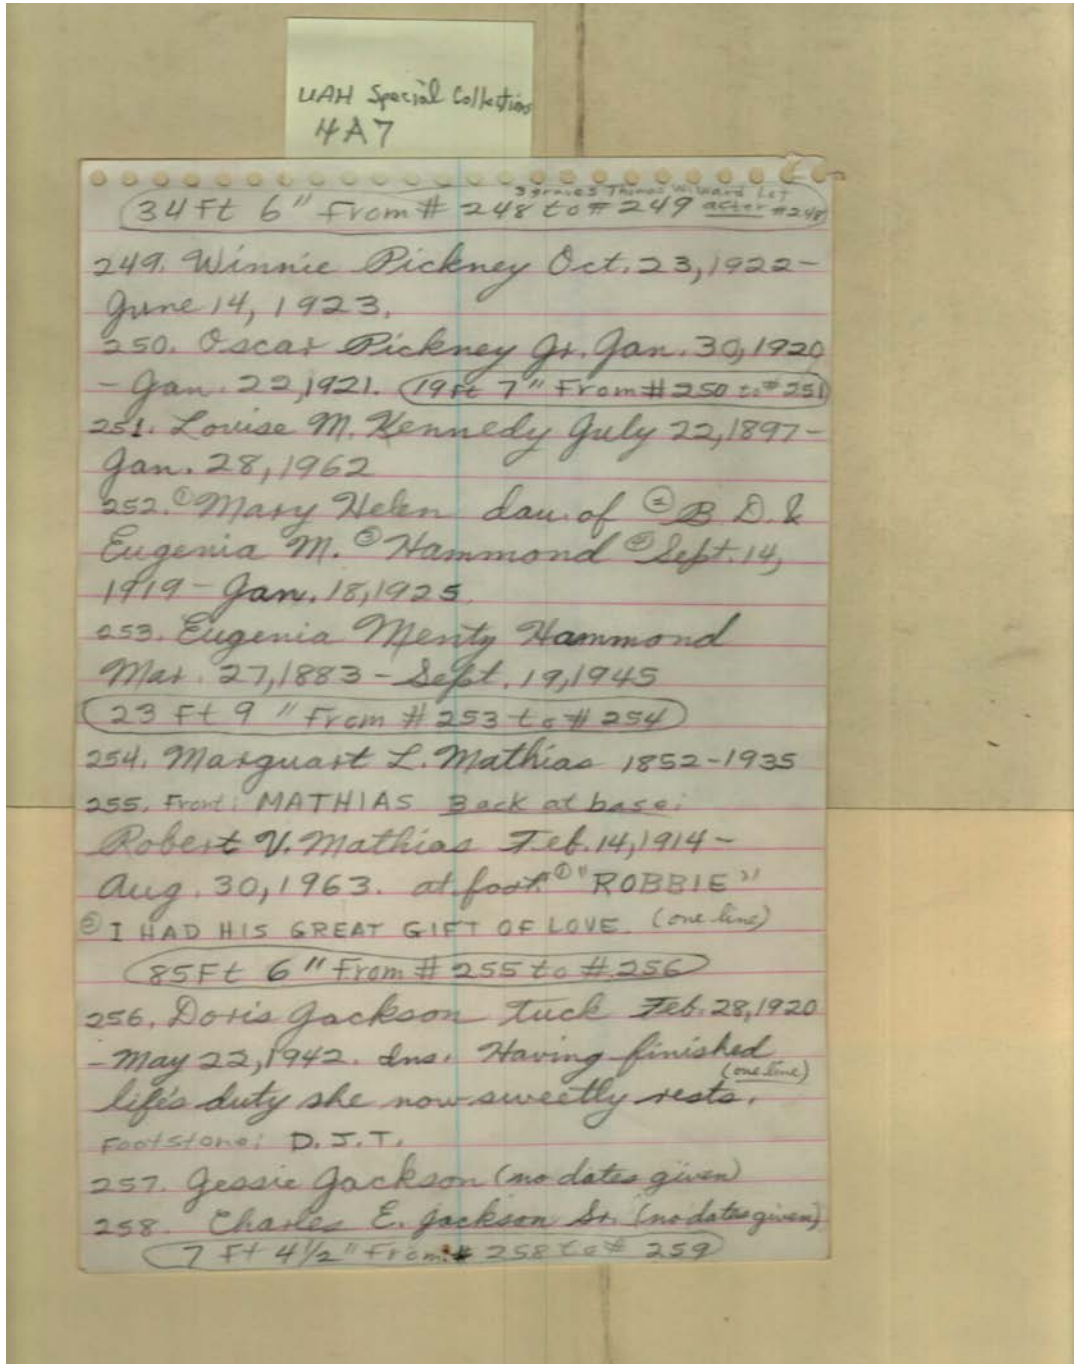 UAH Special Collections
4A7
3 graves Thomas Willard Lot
34 Ft 6" From # 248 to # 249 after #248
249. Winnie Pickney Oct. 23, 1922-
June 14, 1923.
250. Oscar Pickney Jr. Jan. 30, 1920
- Jan. 22, 1921. 19 Ft 7" From # 250 to # 251
251. Louise M. Kennedy July 22, 1897-
Jan. 28, 1962
252. ① Mary Helen dau. of ② B D. &
Eugenia M. ③ Hammond ④ Sept. 14,
1919 - Jan. 18, 1925.
253. Eugenia Menty Hammond
Mar. 27, 1883 - Sept. 19, 1945
23 Ft 9 " From # 253 to # 254
254. Marguart L. Mathias 1852-1935
255. Front: MATHIAS Back at base:
Robert V. Mathias Feb. 14, 1914 -
Aug. 30, 1963. at foot ① "ROBBIE"
② I HAD HIS GREAT GIFT OF LOVE. (one line)
85 Ft 6" From # 255 to # 256
256. Doris Jackson Tuck Feb. 28, 1920
- May 22, 1942. Ins. Having finished
(one line)
life's duty she now sweetly rests.
Footstone: D.J.T.
257. Jessie Jackson (no dates given)
258. Charles E. Jackson Sr. (no dates given)
7 Ft 4 1/2" From # 258 to # 259